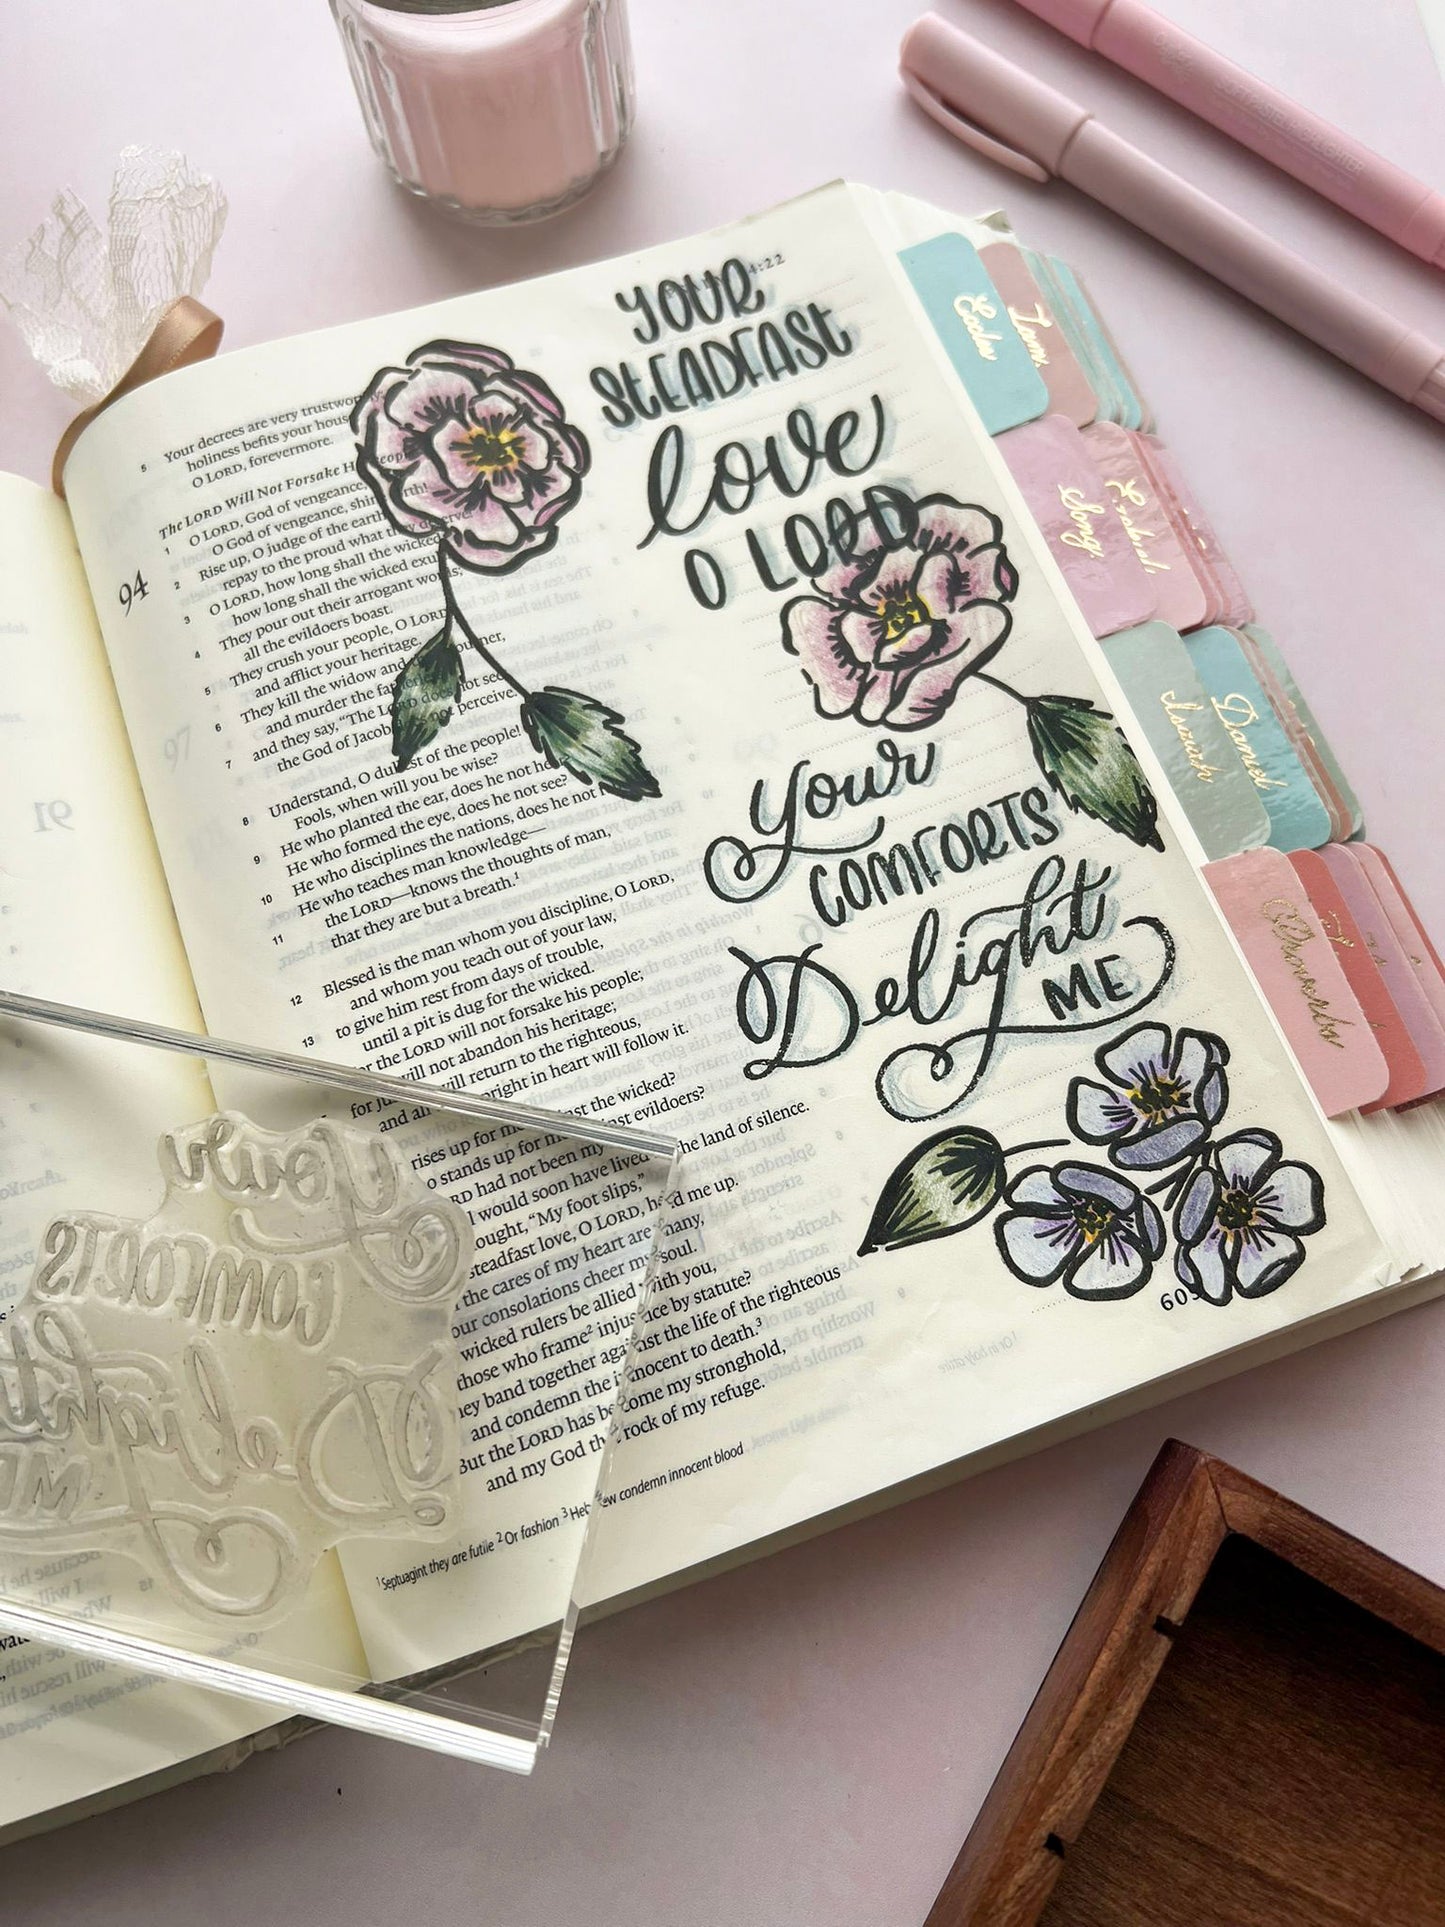 5 Your decrees are very trustworthy;
holiness befits your house,
O LORD, forevermore.
The LORD Will Not Forsake His People
94
1 O LORD, God of vengeance,
O God of vengeance, shine forth!
2 Rise up, O judge of the earth;
repay to the proud what they deserve!
3 O LORD, how long shall the wicked,
how long shall the wicked exult?
4 They pour out their arrogant words;
all the evildoers boast.
5 They crush your people, O LORD,
and afflict your heritage.
6 They kill the widow and the sojourner,
and murder the fatherless;
7 and they say, “The LORD does not see;
the God of Jacob does not perceive.”
8 Understand, O dullest of the people!
Fools, when will you be wise?
9 He who planted the ear, does he not hear?
He who formed the eye, does he not see?
10 He who disciplines the nations, does he not
He who teaches man knowledge—
11 the LORD—knows the thoughts of man,
that they are but a breath.1
12 Blessed is the man whom you discipline, O LORD,
and whom you teach out of your law,
13 to give him rest from days of trouble,
until a pit is dug for the wicked.
the LORD will not forsake his people;
will not abandon his heritage;
for will return to the righteous,
and all upright in heart will follow it.
rises up for me against the wicked?
stands up for me against evildoers?
LORD had not been my
I would soon have lived the land of silence.
thought, “My foot slips,”
steadfast love, O LORD, held me up.
the cares of my heart are many,
your consolations cheer my soul.
wicked rulers be allied with you,
those who frame2 injustice by statute?
They band together against the life of the righteous
and condemn the innocent to death.3
But the LORD has become my stronghold,
and my God the rock of my refuge.
1 Septuagint they are futile 2 Or fashion 3 Hebrew condemn innocent blood
4:22
YOUR
STEADFAST
love
O LORD
Your
COMFORTS
Delight
ME
Eccles
Songs
Ezekiel
Isaiah
Daniel
Proverbs
Your
COMFORTS
Delight
ME
SOFT PASTEL HIGHLIGHTER